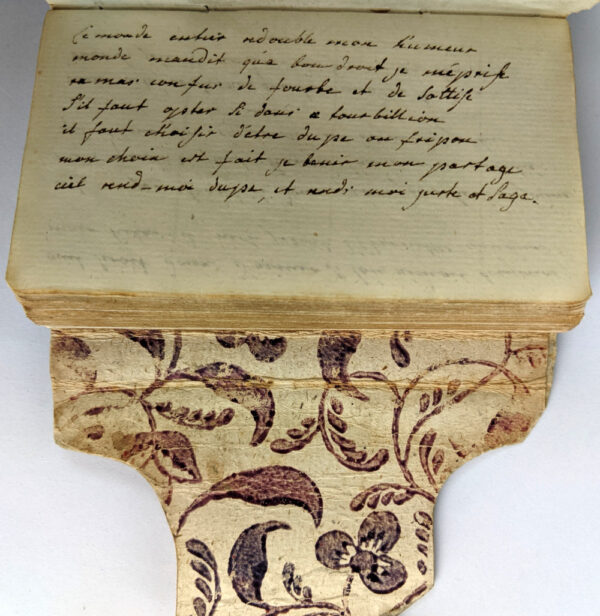 Ce monde entier redouble mon humeur
monde maudit qua bon droit je méprise
ramas confus de fourbe et de sottise
S'il faut opter si dans ce tourbillion
il faut choisir d'etre dupe ou fripon
mon choix est fait je benir mon partage
ciel rend-moi dupe, et rends moi juste et Sage.